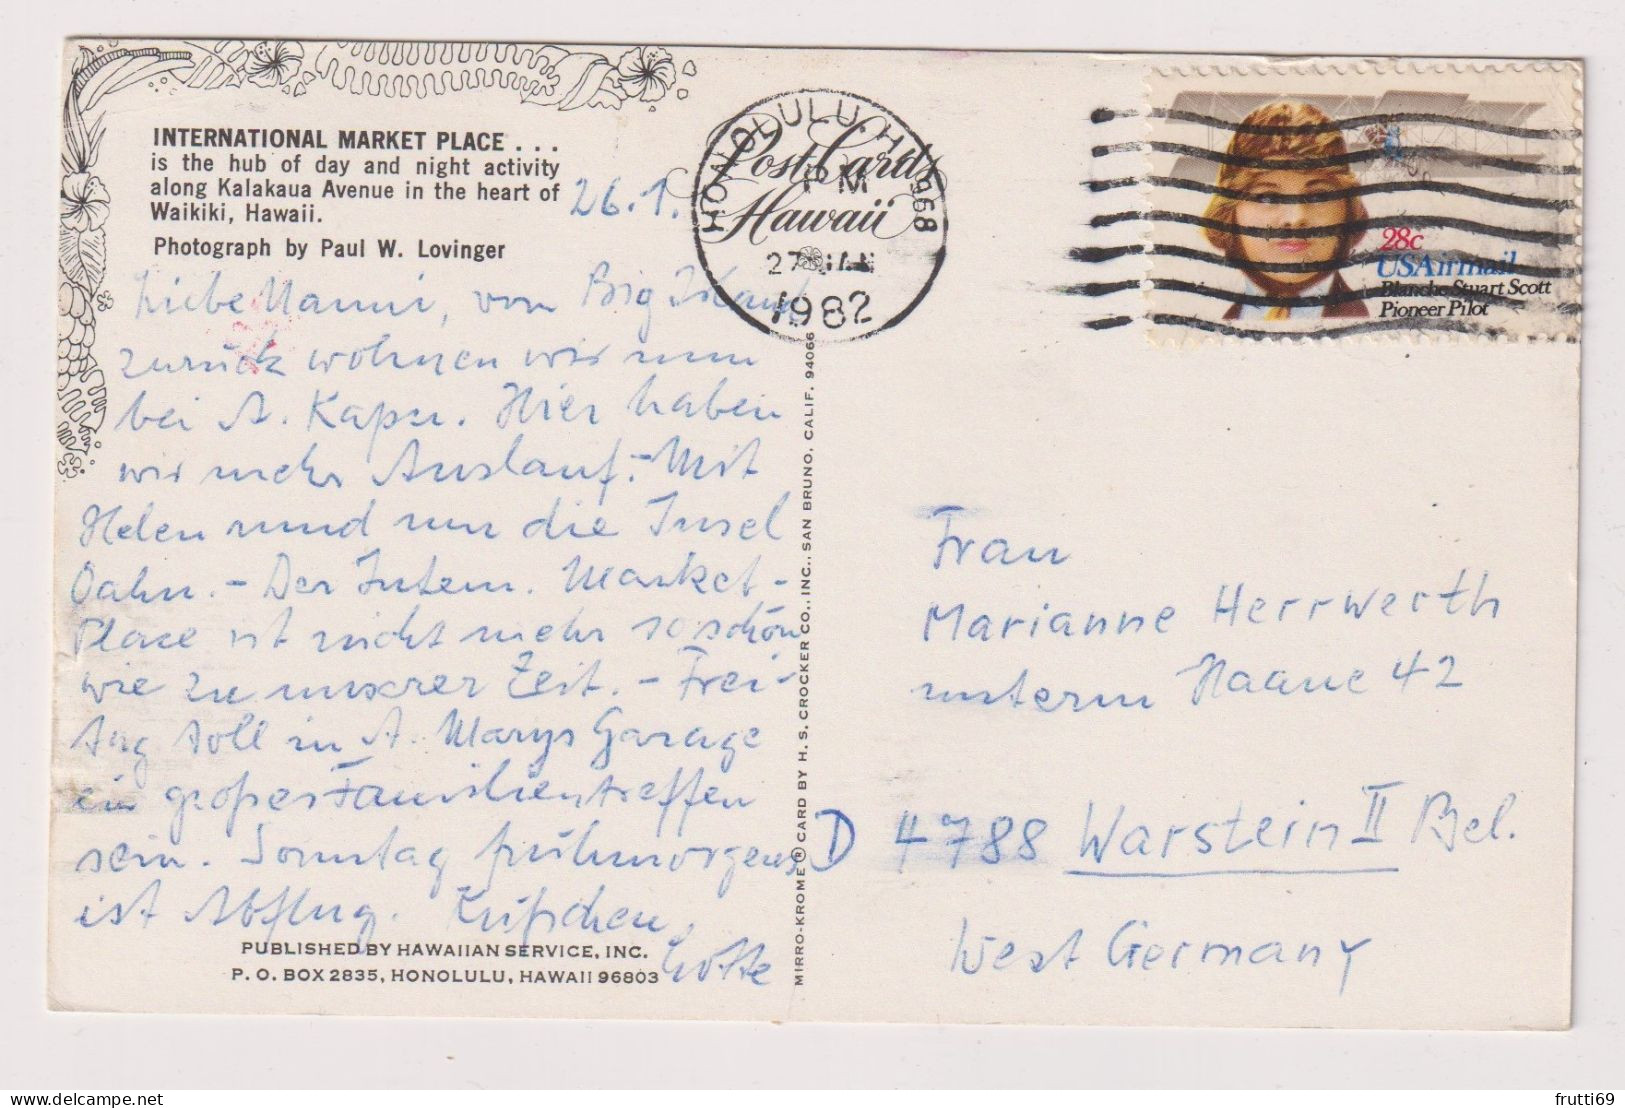 INTERNATIONAL MARKET PLACE . . .
is the hub of day and night activity
along Kalakaua Avenue in the heart of
Waikiki, Hawaii.
Photograph by Paul W. Lovinger
26.1.
Liebe Nanni, von Big Island
zurück wohnen wir nun
bei A. Kapsn. Hier haben
wir mehr Auslauf.- Mit
Helen rund um die Insel
Oahu. - Der Intern. Market-
Place ist nicht mehr so schön
wie zu unserer Zeit. - Frei-
tag soll in A. Marys Garage
ein großes Familientreffen
sein. Sonntag frühmorgens
ist Abflug. Küßchen,
Lotte
PUBLISHED BY HAWAIIAN SERVICE, INC.
P. O. BOX 2835, HONOLULU, HAWAII 96803
MIRRO-KROME ® CARD BY H. S. CROCKER CO., INC., SAN BRUNO, CALIF. 94066
Post Cards
Hawaii
HONOLULU, HI 968
PM
27 JAN
1982
28c
USAirmail
Blanche Stuart Scott
Pioneer Pilot
Frau
Marianne Herrwerth
unterm Haane 42
D 4788 Warstein II Bel.
West Germany
frutti69